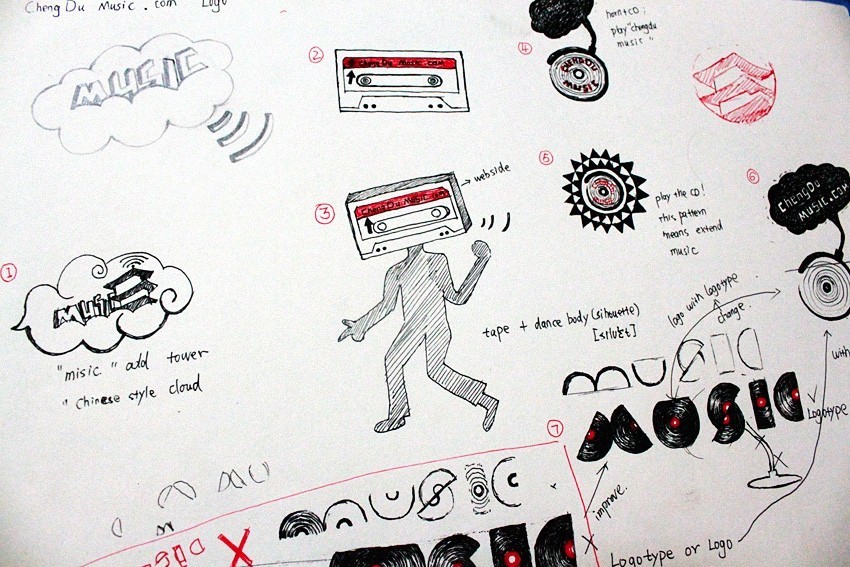 ChengDu Music.com Logo
MUSIC
②
ChengDu Music.com
④
horn+CD;
play "chengdu
music"
CHENGDU
MUSIC
③
webside
ChengDu Music.com
⑤
play the CD!
this pattern
means extend
music
⑥
ChengDu
MUSIC.com
①
"misic" add tower
" Chinese style cloud
tape + dance body (silhouette)
logo with logotype
change.
MUSIC
MUSIC
Logotype
with
⑦
improve.
MUSIC
MUSIC
Logotype or Logo